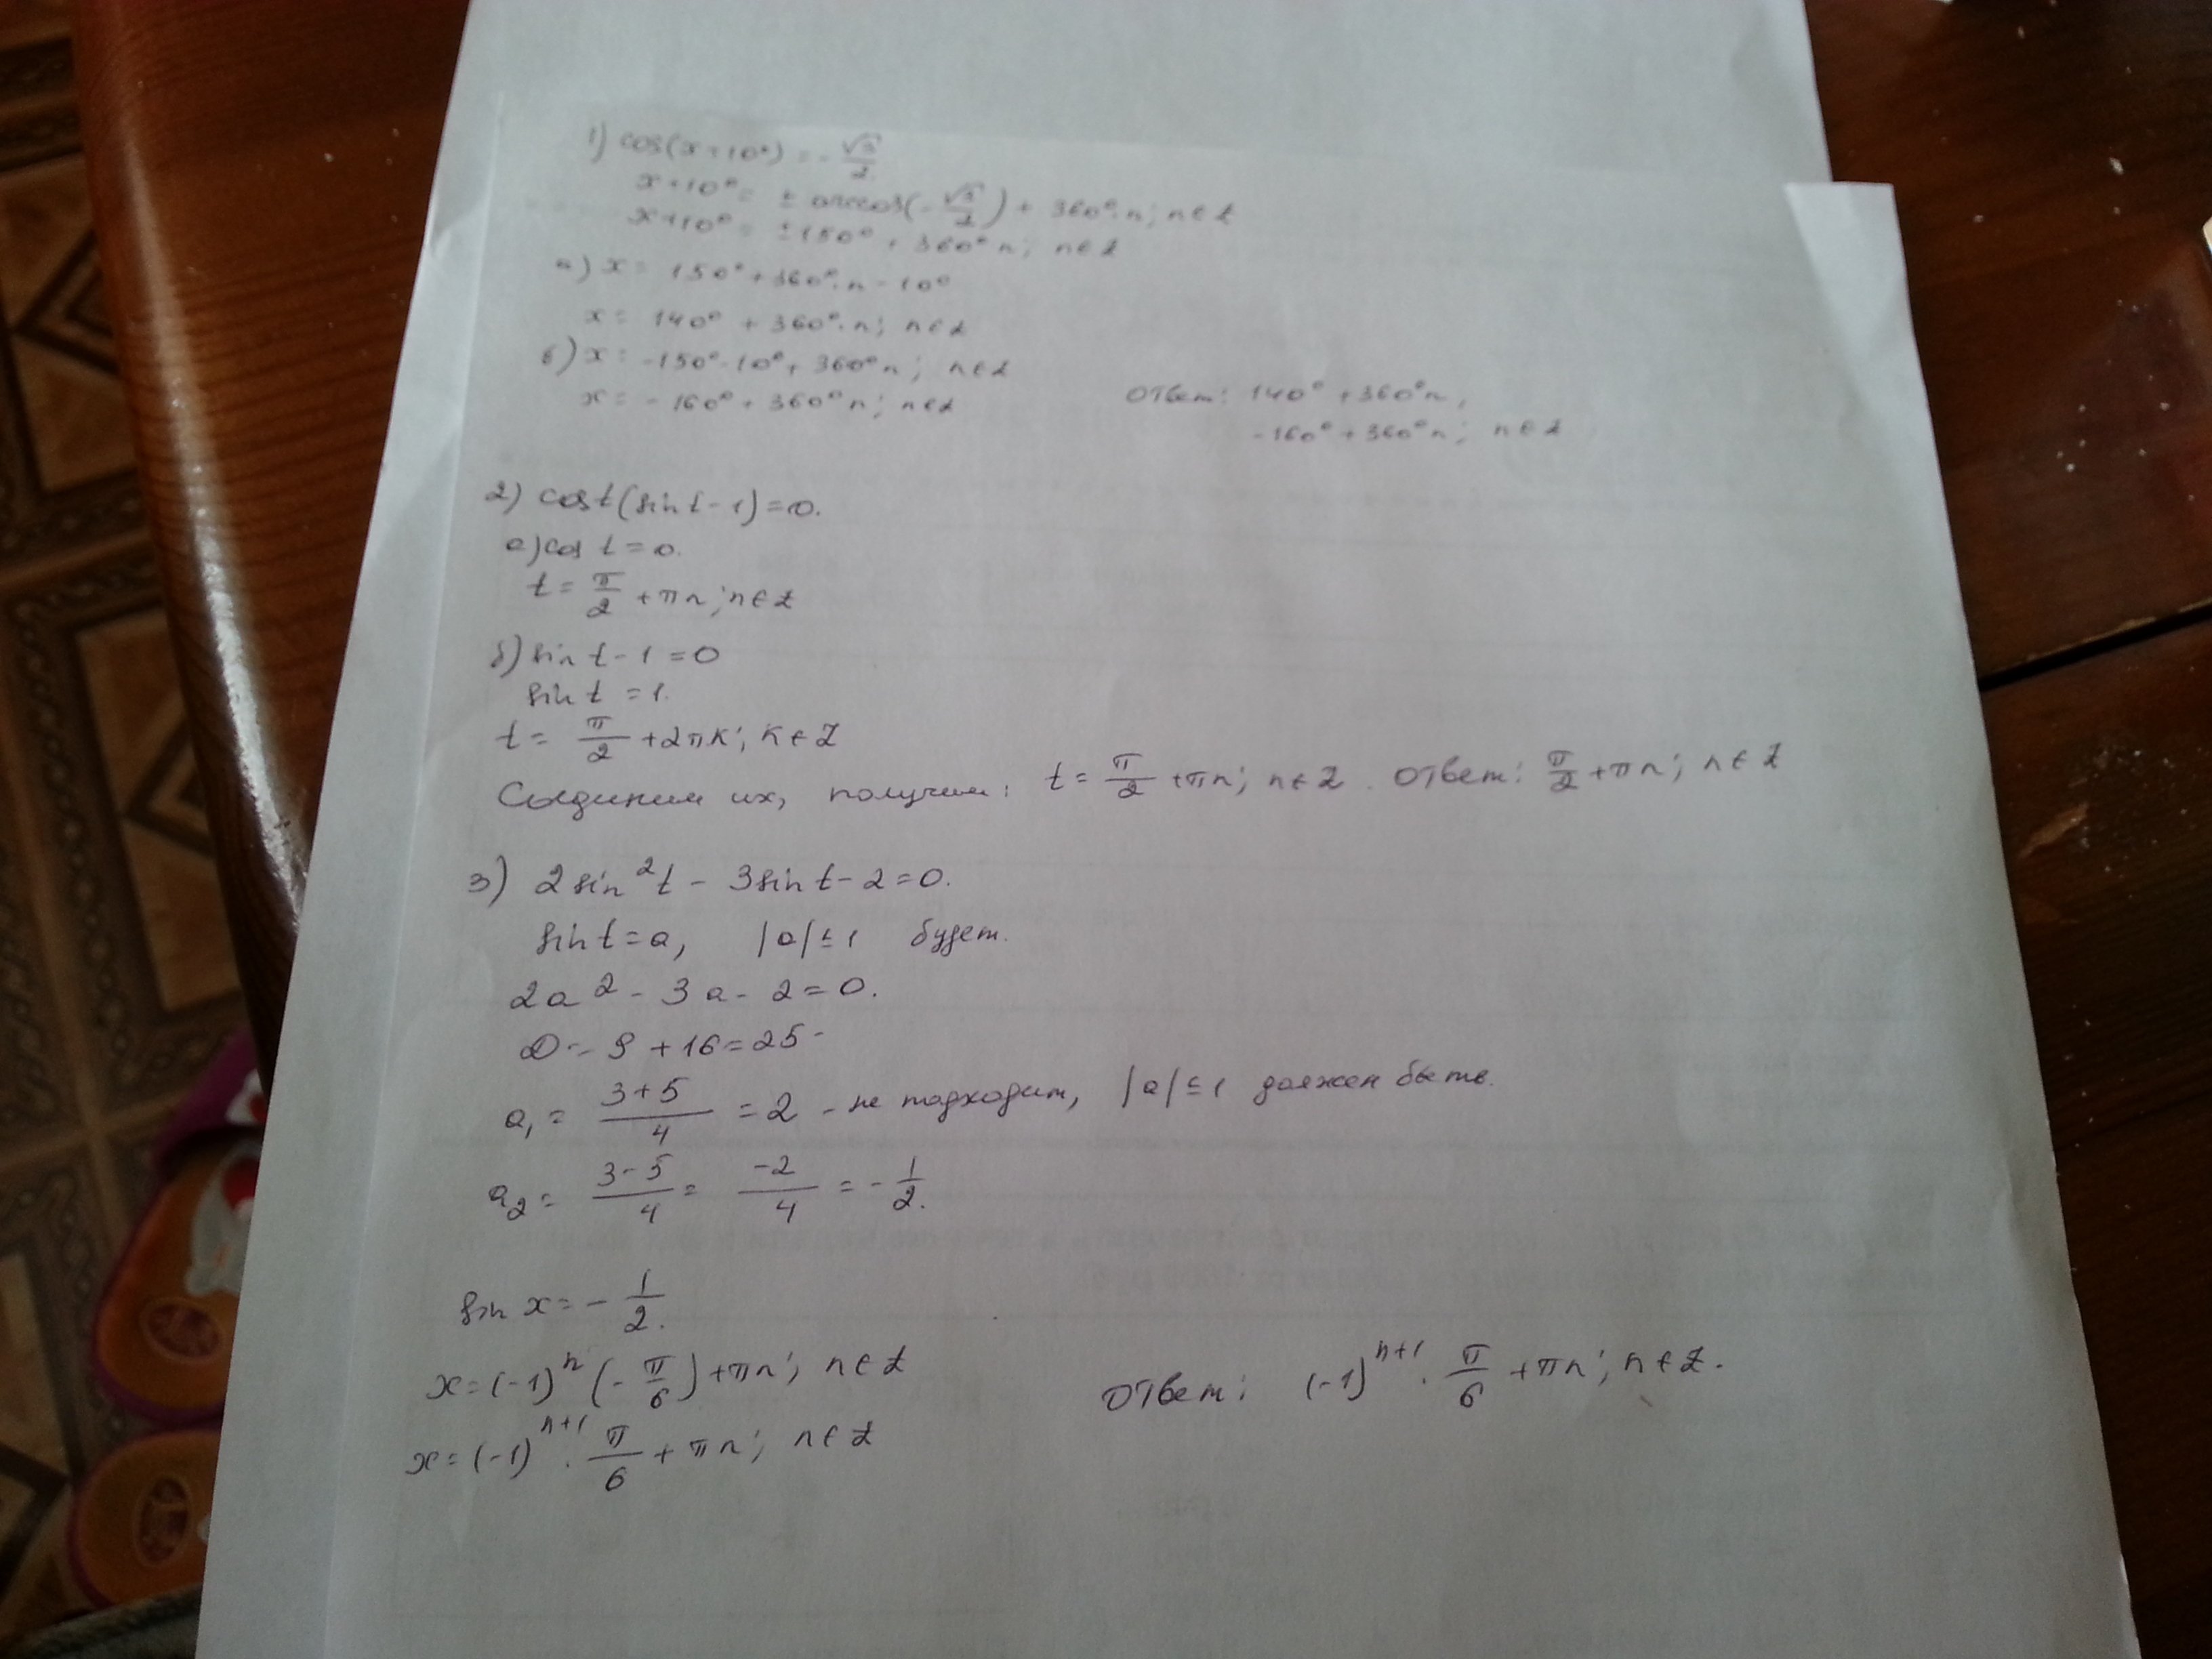 1) cos(x+10°) = -√3/2
x+10° = ± arccos(-√3/2) + 360°·n; n∈Z
x+10° = ±150° + 360°n; n∈Z
а) x = 150° + 360°·n - 10°
x = 140° + 360°·n; n∈Z
б) x = -150° - 10° + 360°n; n∈Z
x = -160° + 360°n; n∈Z
Ответ: 140° + 360°n,
-160° + 360°n; n∈Z
2) cos t (sin t - 1) = 0.
а) cos t = 0.
t = π/2 + πn; n∈Z
б) sin t - 1 = 0
sin t = 1.
t = π/2 + 2πk; k∈Z
Соединим их, получим: t = π/2 + πn; n∈Z. Ответ: π/2 + πn; n∈Z
3) 2sin²t - 3sin t - 2 = 0.
sin t = a, |a| ≤ 1 будет.
2a² - 3a - 2 = 0.
D = 9 + 16 = 25
a₁ = (3+5)/4 = 2 - не подходит, |a| ≤ 1 должен быть.
a₂ = (3-5)/4 = -2/4 = -1/2.
sin x = -1/2.
x = (-1)ⁿ(-π/6) + πn; n∈Z
x = (-1)ⁿ⁺¹ · π/6 + πn; n∈Z
Ответ: (-1)ⁿ⁺¹ · π/6 + πn; n∈Z.